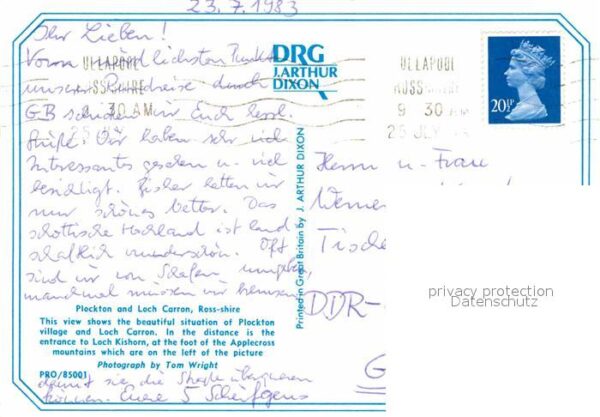 23.7.1983
Ihr Lieben!
Vom nördlichsten Punkt
unserer Rundreise durch
GB senden wir Euch herzl.
Grüße. Wir haben sehr viel
Interessantes gesehen u. viel
besichtigt. Bisher hatten wir
nur schönes Wetter. Das
schottische Hochland ist land
schaftlich wunderschön. Oft
sind wir von Schafen umgeben,
manchmal müssen wir bremsen,
Plockton and Loch Carron, Ross-shire
This view shows the beautiful situation of Plockton
village and Loch Carron. In the distance is the
entrance to Loch Kishorn, at the foot of the Applecross
mountains which are on the left of the picture
Photograph by Tom Wright
PRO/85001
damit sie die Straße überqueren
können. Eure 5
DRG
J.ARTHUR
DIXON
Printed in Great Britain by J. ARTHUR DIXON
ULLAPOOL
ROSS-SHIRE
9 30 AM
25 JLY
ULLAPOOL
ROSS-SHIRE
9 30 AM
25 JLY
20½P
Herrn u. Frau
Werner
Tische
DDR-
G
privacy protection
Datenschutz